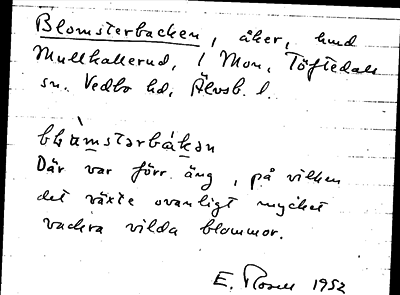 Blomsterbacken, åker, und
Mullhallerud, 1 Mon, Töftedals
sn. Vedbo hd, Älvsb. l.
blɷ̀mstərbák̲ən
Där var förr äng, på vilken
det växte ovanligt mycket
vackra vilda blommor.
E. Rosell 1952